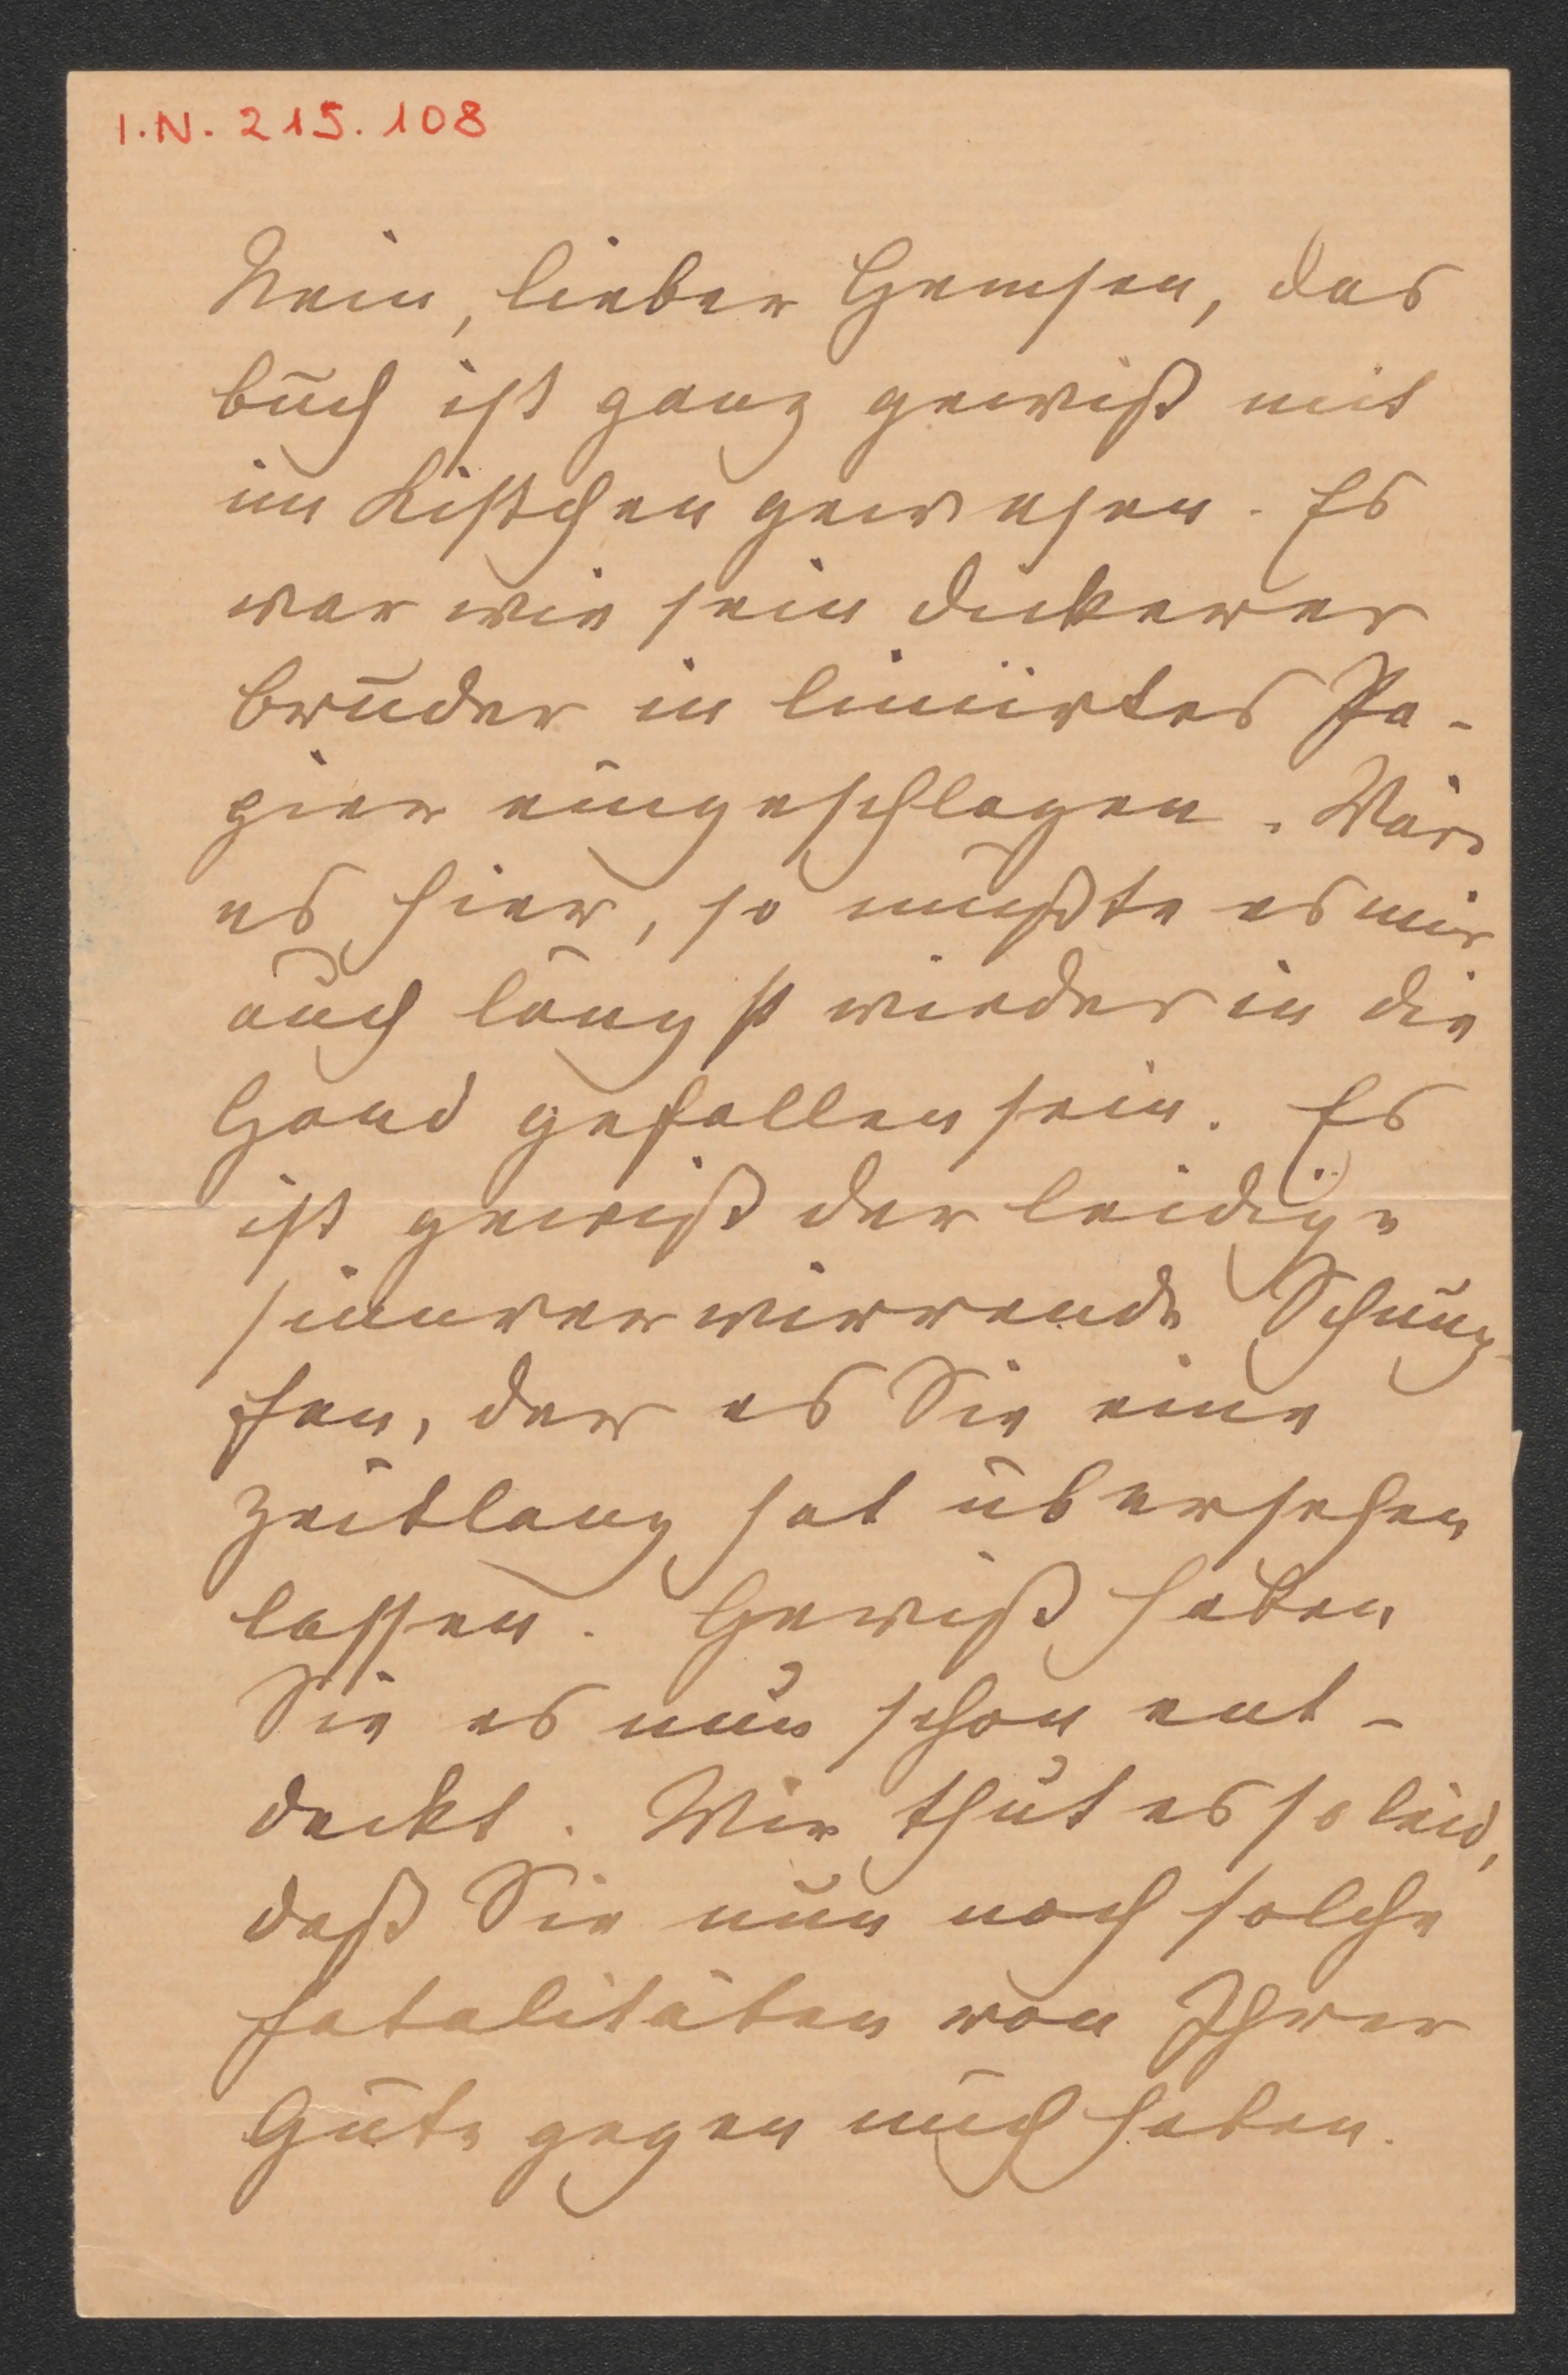 I.N. 215.108
Nein, lieber Hemsen, das
Buch ist ganz gewiß mit
im Kistchen gewesen. Es
war wie sein dickerer
Bruder in liniirtes Pa-
pier eingeschlagen. Wär
es hier, so müßte es mir
auch längst wieder in die
Hand gefallen sein. Es
ist gewiß der leidige
sinnverwirrende Schnup-
fen, der es Sie eine
Zeitlang hat übersehen
lassen. Gewiß haben
Sie es nun schon ent-
deckt. Mir thut es so leid,
daß Sie nun noch solche
Fatalitäten von Ihrer
Güte gegen mich haben.